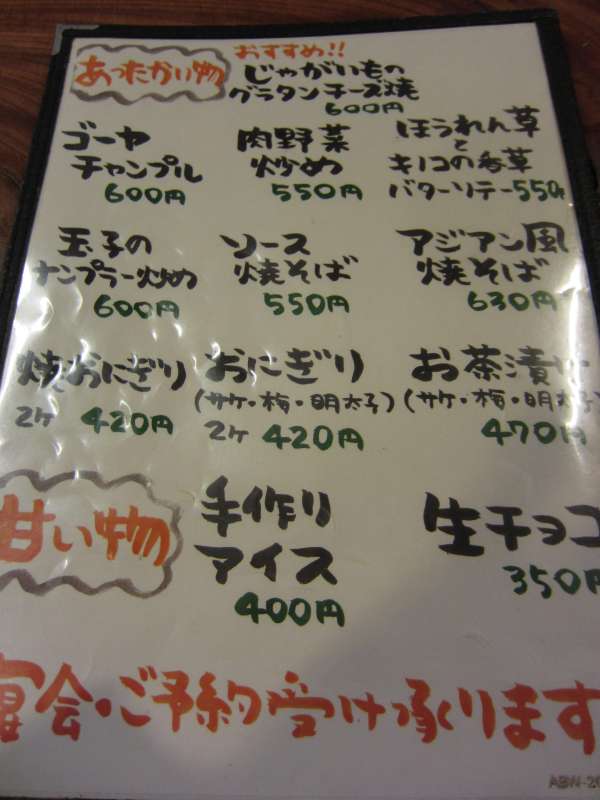 あったかい物
おすすめ!!
じゃがいもの
グラタンチーズ焼
600円
ゴーヤ
チャンプル
600円
肉野菜
炒め
550円
ほうれん草
と
キノコの香草
バターソテー550円
玉子の
ナンプラー炒め
600円
ソース
焼そば
550円
アジアン風
焼そば
630円
焼おにぎり
2ヶ 420円
おにぎり
(サケ・梅・明太子)
2ヶ 420円
お茶漬ケ
(サケ・梅・明太子)
470円
甘い物
手作り
アイス
400円
生チョコ
350円
宴会・ご予約受け承ります